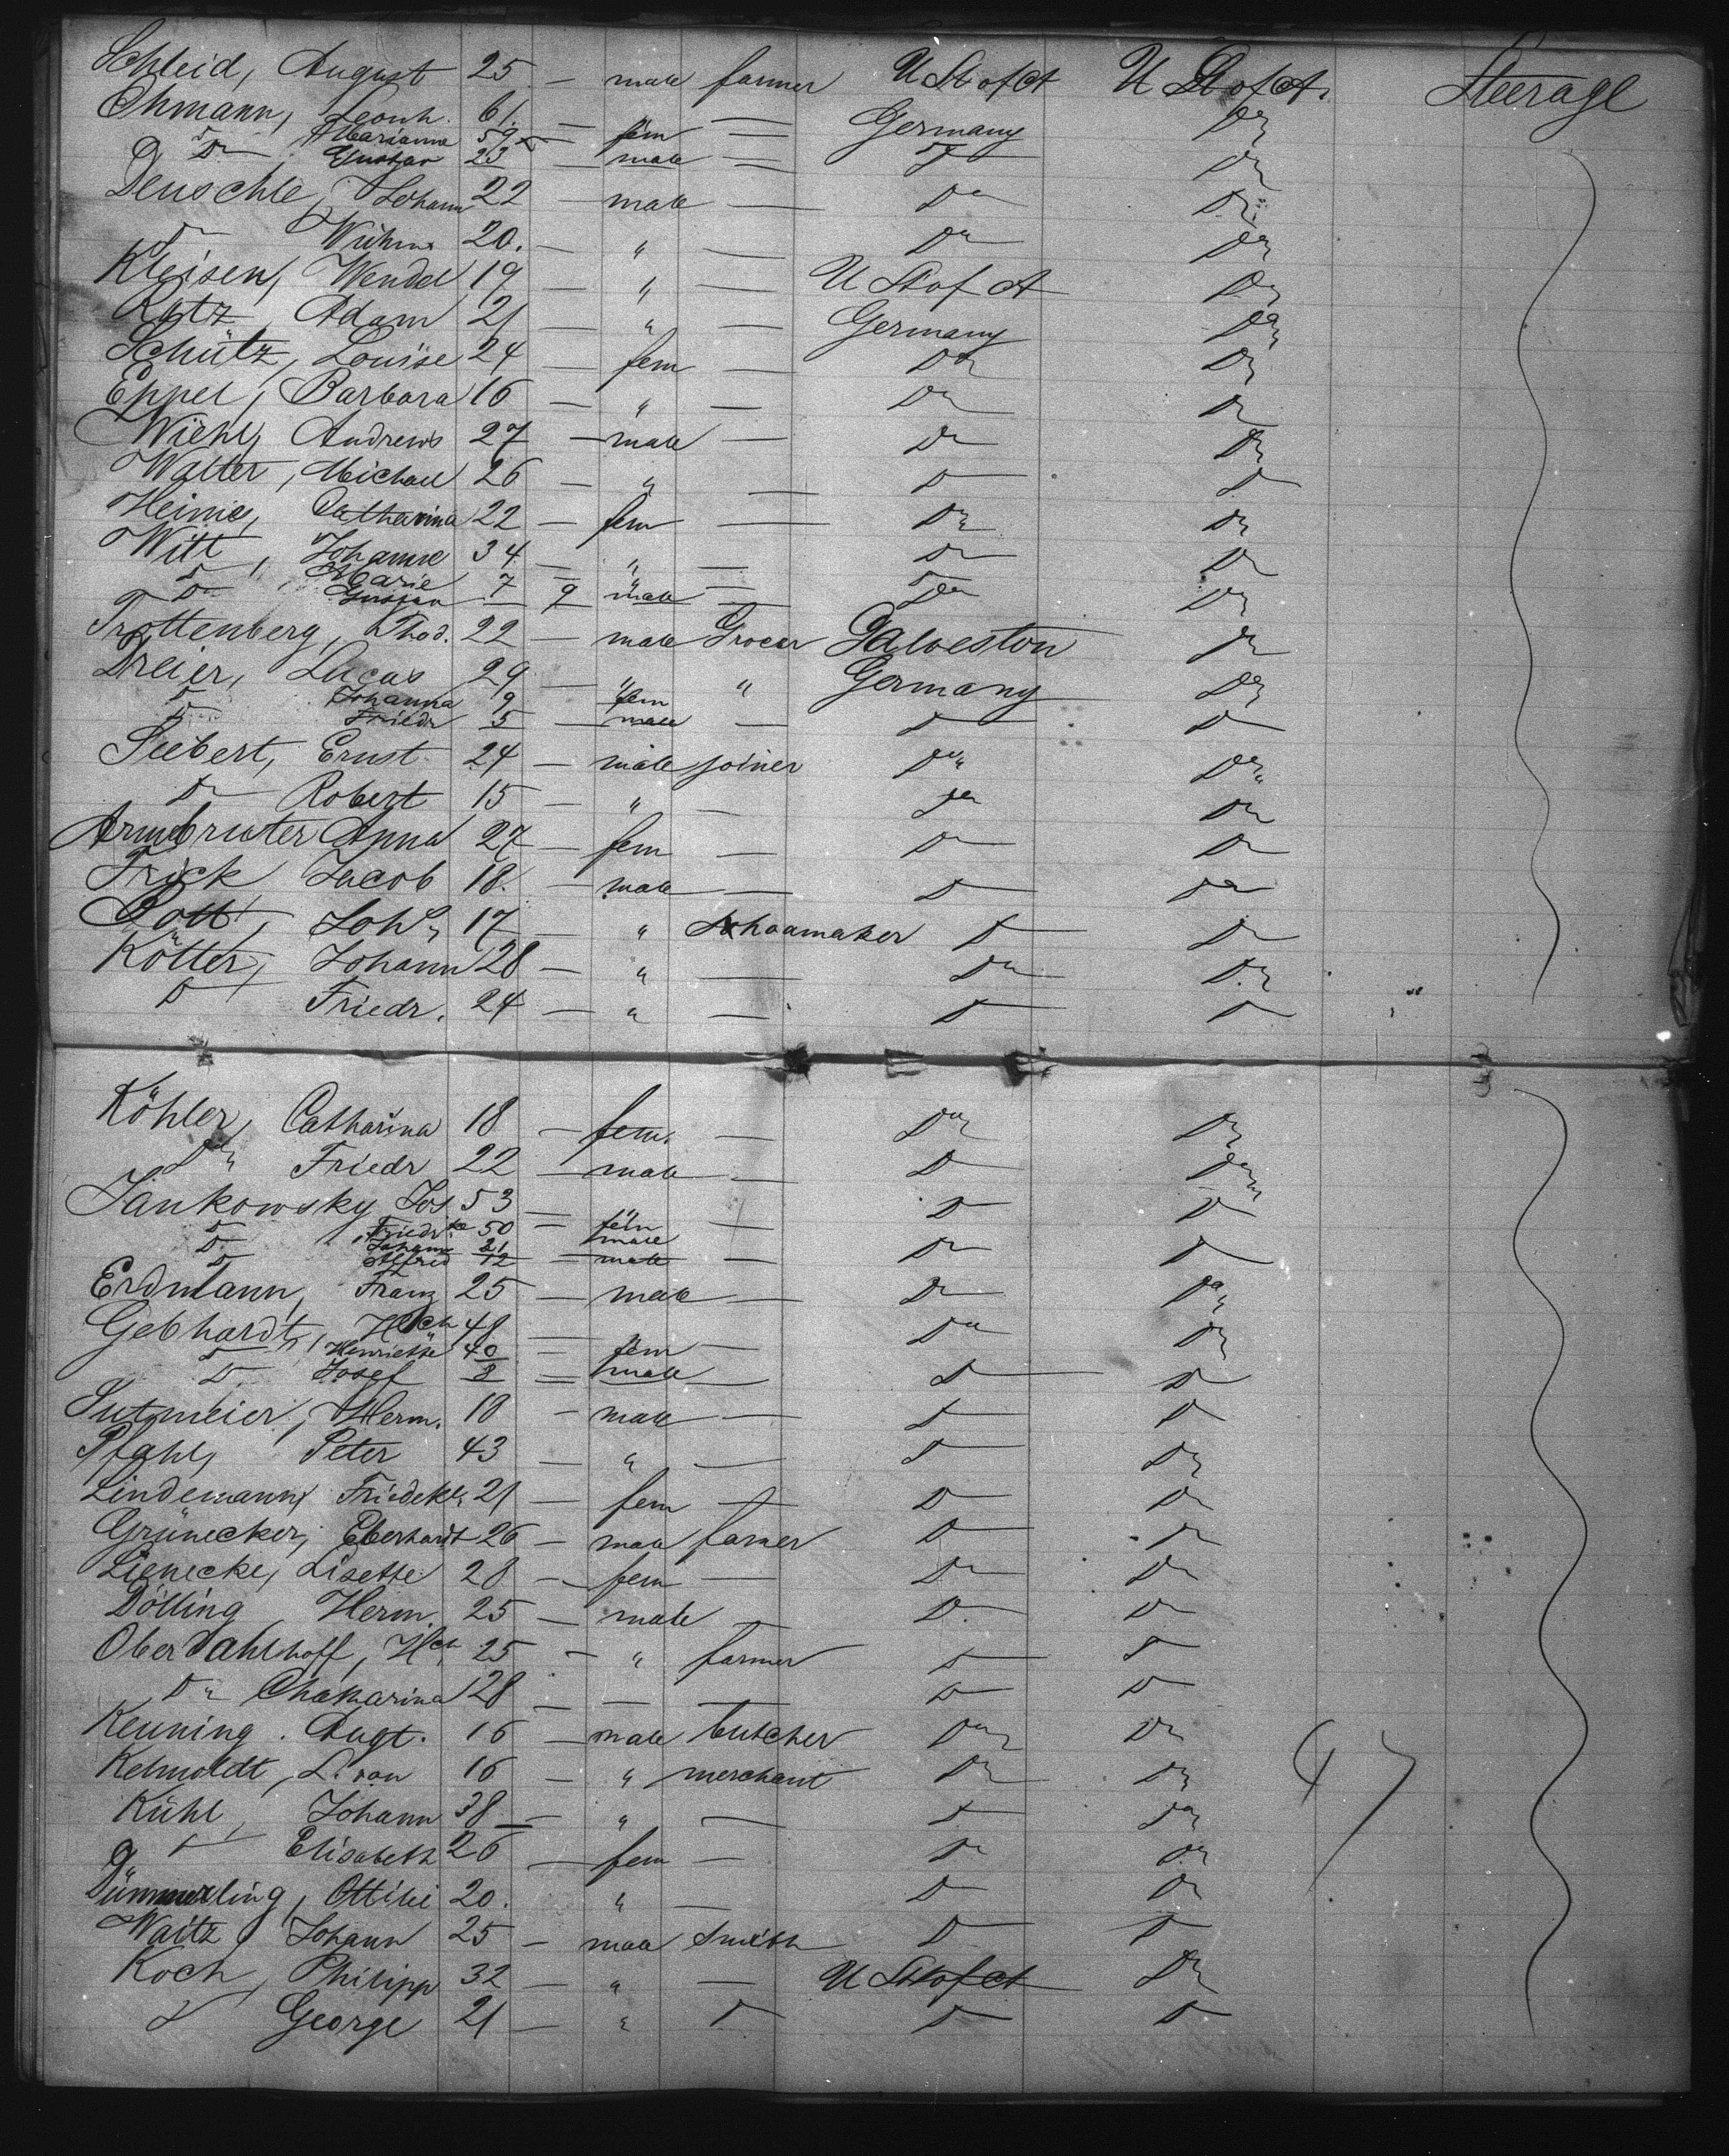 Schleid, August 25 — male farmer U St of A U St of A. Steerage
Ehmann, Leonh. 61. — — Germany Do
Marianne 59 — fem —
Do Gustav 23 — male — Do Do
Deuschle, Johann 22 — male — Do Do
Do Wilhm 20. — " — Do Do
Kleisen, Wendel 19 — " — U St of A Do
Rotz, Adam 21 — " — Germany Do
Schütz, Louise 24 — fem — Do Do
Eppel, Barbara 16 — " — Do Do
Wiehl, Andrews 27 — male — Do Do
Walter, Michael 26 — " — Do Do
Heinie, Catharina 22 — fem — Do Do
Witt, Johanne 34 — " — Do Do
Do Marie 7 — " —
Do Gustav — 9 male — Do Do
Trottenberg, Thod. 22 — male Grocer Galveston Do
Dreier, Lucas 29 — " " Germany Do
Do Johanna 9 fem
Do Friedr 5 — male — Do Do
Siebert, Ernst 24 — male joiner Do Do
Do Robert 15 — " — Do Do
Armbruster Anna 27 — fem — Do Do
Frick Jacob 18. — male — Do Do
Rott, Joh 17 — " Schoamaker Do Do
Kötter, Johann 28 — " — Do Do
Do Friedr. 24 — " — Do Do
Köhler, Catharina 18 — fem. — Do Do
Do Friedr 22 — male — Do Do
Jankowsky Jos 53 — " — Do Do
Do Friedrke 50 — fem —
Do Johann 21 male
Do Alfred 12 — male — Do Do
Erdmann, Franz 25 — male — Do Do
Gebhardt, Hch 48 — — Do Do
Do Henriette 40 — fem —
Do Josef 8 — male — Do Do
Sutmeier, Herm. 18 — male — Do Do
Pfahl, Peter 43 — " — Do Do
Lindemann, Friedeke 21 — fem — Do Do
Grünecker, Eberhardt 26 — male farmer Do Do
Lienecke, Lisette 28 — fem — Do Do
Dölling, Herm. 25 — male — Do Do
Oberdahlhoff, Hch 25 — " farmer Do Do
Do Chatarina 28 — — — Do Do
Keuning. Augt. 16 — male butcher Do Do
Kehmoldt, L. von 16 — " merchant Do Do
Kühl, Johann 38 — " — Do Do
Do Elisabeth 26 — fem — Do Do
Dümmerling, Ottilie 20. " — Do Do
Waitz, Johann 25 — male Smith Do Do
Koch, Philipp 32 — " — U St of A Do
Do George 21 — " Do Do Do